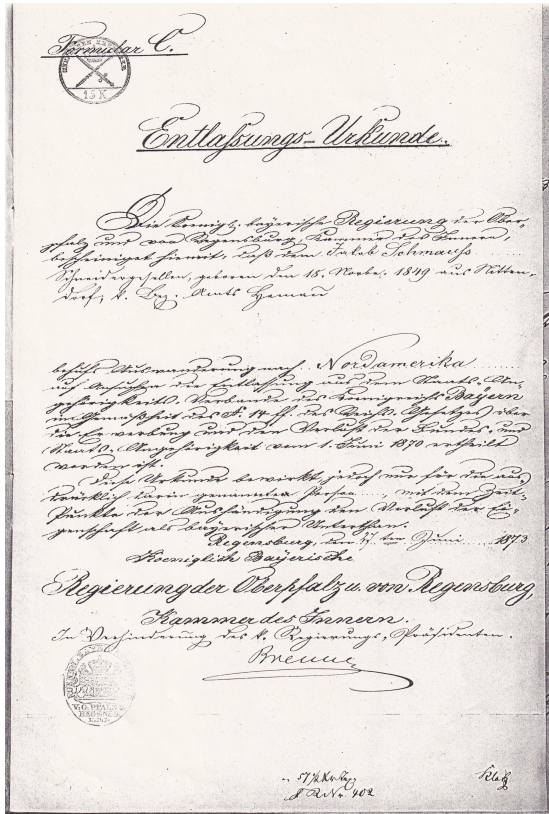 Formular C.
15 K
Entlassungs-Urkunde.
Die Koenigl. bayerische Regierung der Ober-
pfalz und von Regensburg, Kammer des Innern,
bescheiniget hiermit, daß dem Jakob Schmauss
Schneidergesellen, geboren den 18. Novbr. 1849 aus Nitten-
dorf, k. Bez. Amts Hemau
behufs Auswanderung nach Nordamerika
auf Ansuchen die Entlassung aus dem Staats-An-
gehörigkeits-Verbande des Königreichs Bayern
in Gemäßheit des §. 14 ff. des Reichs-Gesetzes über
die Erwerbung und den Verlust der Bundes- und
Staats-Angehörigkeit vom 1. Juni 1870 ertheilt
worden ist.
Diese Urkunde bewirkt jedoch nur für die aus-
drücklich darin genannte Person, mit dem Zeit-
Punkte der Aushändigung den Verlust der Ei-
genschaft als bayerischer Unterthan.
Regensburg, den 27ten Juni 1873
Koeniglich Bayerische
Regierung der Oberpfalz u. von Regensburg,
Kammer des Innern.
In Verhinderung des k. Regierungs-Präsidenten.
V.O. PFALZ
REGENSB.
R.Nr. 402